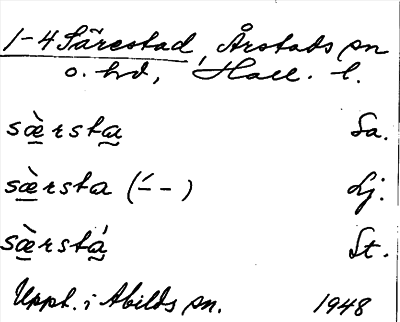 1-4 Särestad, Årstads sn
o. hd, Hall. l.
sæ̀rsta Sa.
sæ̀rsta (´- -) Lj.
sæ̀rstá St.
Uppt. i Abilds sn. 1948